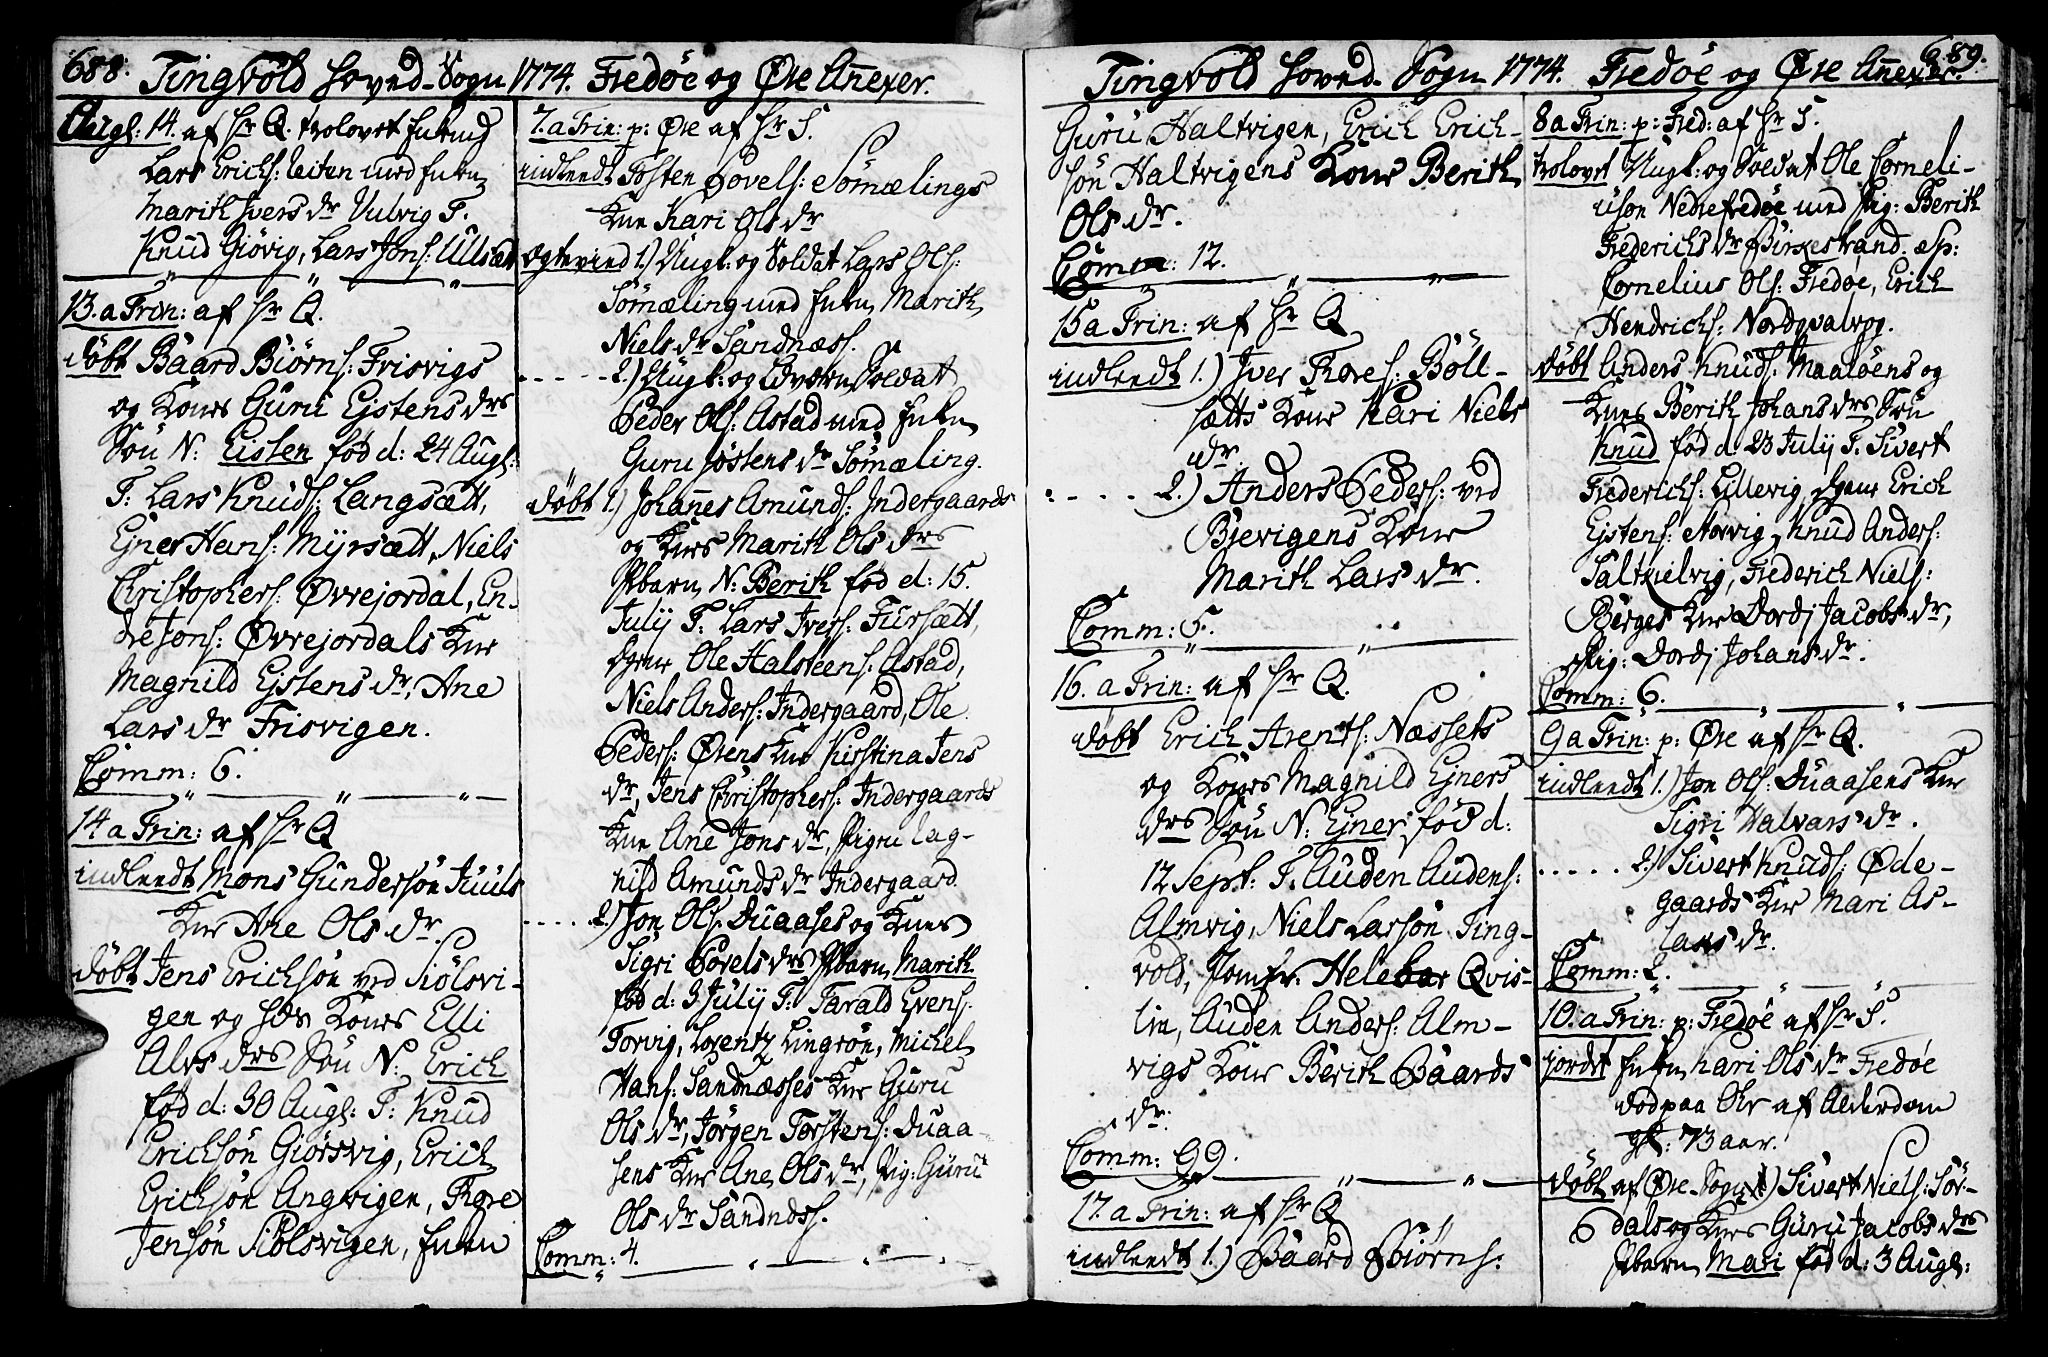 688. Tingvold Hoved-Sogn 1774. Fredøe og Øre Anexer.
14. af Hr Q. trolovet
Lars Ericks: Leiten med
Marith Ivers dr Vulvig F.
Knud Giøvig, Lars Jons: Ulsæt
13. a Trin: af Hr Q.
døbt Baard Biørns: Frisvigs
og Kones Guru Ejstens drs
Søn N: Eisten fød d: 24 Augs:
F: Lars Knuds: Langsætt,
Ejner Hans: Myrsætt, Niels
Christophers: Øvrejordal, En-
dre Jons: Øvrejordals Kne
Magnild Ejstens dr, Ane
Lars dr Frisvigen.
Comm: 6.
14 a Trin: af Hr Q
indleedt Mons Gundersøn Juuls
Kne Ane Ols dr.
døbt Jens Ericksøn ved Siølsvi-
gen og Hds Kones Elli
Alvs drs Søn N: Erick
fød d: 30 Augs: F: Knud
Ericksøn Giørsvig, Erich
Ericksøn Angvigen, Tore
Jensøn Siølsvigen,
7. a Trin: p: Øre af Hr S.
indleedt Tosten Povels: Sømælings
Kne Kari Ols dr
ægtevied 1.) Ungk: og Soldat Lars Ols:
Sømæling med Marith
Niels dr Sandnæss.
- - - - - 2.) Ungk: og Soldat
Peder Ols: Astad med
Guru Jøstens dr Sømæling.
døbt 1.) Johannes Amunds: Indergaards
og Knes Marith Ols drs
Pbarn N: Berith fød d: 15.
July F: Lars Ivers: Fursætt,
Ole Halsteens: Astad,
Niels Anders: Indergaard, Ole
Peders: Ørens Kne Kirstina Jens
dr, Jens Christophers: Indergaards
Kne Ane Jons dr, Pigen Rag-
nild Amunds dr Indergaard
- - - - 2.) Jon Ols: Duaases og Knes
Sigri Povels drs Pbarn Marith
fød d: 3 July F: Tarald Evens:
Torvig, Lorentz Lingrøn, Michel
Hans: Sandnæsses Kne Guru
Ols dr, Jørgen Torstens: Duaa-
sens Kne Ane Ols dr, Pig: Guru
Ols dr Sandnds.
Comm: 4.
Tingvold Hoved-Sogn 1774. Fredøe og Øre Anexer.
689.
Guru Haltvigen, Erich Erich-
søn Haltvigens Kone Berith
Ols dr.
Comm: 12.
15 a Trin: af Hr Q
indleedt 1.) Iver Tores: Bøll-
sætts Kone Kari Niels
dr.
- - - - 2.) Anders Peders: ved
Bjervigens Kone
Marith Lars dr.
Comm: 5.
16. a Trin: af Hr Q.
døbt Erich Arents: Næssets
og Kones Magnild Ejners
drs Søn N: Ejner fød d:
12 Sept: F: Auden Audens:
Almvig, Niels Larsøn Ting-
vold, Jomfr. Helebar Qvis-
lin, Auden Anders: Alm-
vigs Kone Berith Baards
dr.
Comm: 99.
17. a Trin: af Hr Q
indleedt 1.) Baard Biørns:
8 a Trin: p: Fred: af Hr S.
trolovet Ungk: og Soldat Ole Corneli-
usøn Nedrefredøe med Pig: Berith
Frederichs dr Birkestrand. Sp:
Cornelius Ols: Fredøe, Erich
Hendrichs: Nordqvalvog.
døbt Anders Knuds: Maaløens og
Knes Berith Johans drs Søn
Knud fød d: 23 July F: Sivert
Frederichs: Lillevig, Erich
Ejstens: Storvig, Knud Anders:
Saltkielvig, Frederich Niels:
Berges Kne Dordj Jacobs dr,
Pig: Dordj Johans dr.
Comm: 6.
9 a Trin: p: Øre af Hr Q.
indleedt 1.) Jon Ols: Duaasens Kne
Sigri Halvars dr.
- - - - - 2.) Sivert Knuds: Øde-
gaards Kne Mari As-
laks dr.
Comm: 2.
10. a Trin: p: Fredøe af Hr S.
jordet Kari Ols dr Fredøe
død paa Øhr af Alderdom
gl: 73 aar.
døbt af Øre-Sogn 1.) Sivert Niels: Sør-
dals og Knes Guru Jacobs drs
Pbarn Mari fød d: 3 Augs: